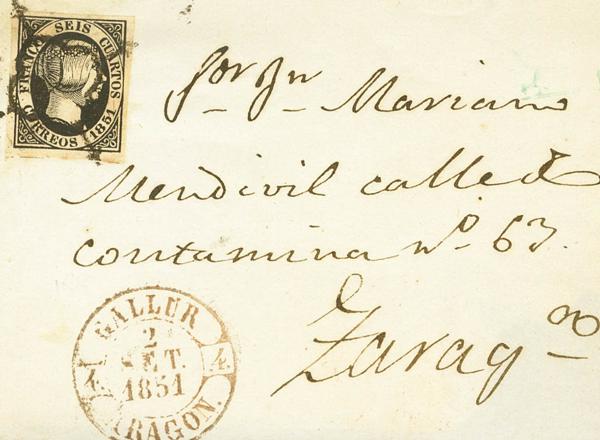 FRANCO SEIS CUARTOS
CORREOS 1851
Sor Dn Mariano
Mendivil calle d
contamina No. 63.
Zarag.a
GALLUR
2
SET.
1851
4
ARAGON.